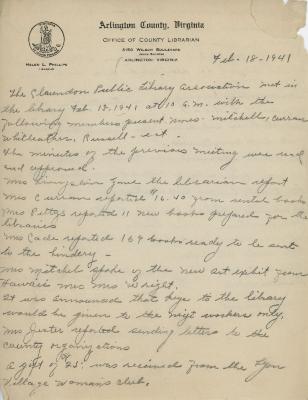 Arlington County, Virginia
OFFICE OF COUNTY LIBRARIAN
3150 WILSON BOULEVARD
ARLINGTON, VIRGINIA
HELEN L. PHILLIPS
LIBRARIAN
Feb-18-1941
The Clarendon Public Library Association met in
the library Feb. 18-1941 at 10 A.M. with the
following members present Mmes- Mitchell, Curran
Whitleather, Russell-
The minutes of the previous meeting were read
and approved.
Mrs Livingston gave the librarian report
Mrs Curran reported $16.40 from rental books
Mrs Petty reported 11 new books prepared for the
libraries
Mrs Cade reported 169 books ready to be sent
to the bindery-
Mrs Mitchel spoke of the new art exhibit from
Hawaii Mrs Wright.
It was announced that keys to the library
would be given to the night workers only.
Mrs Jester reported sending letters to the
county organizations
a gift of was received from the Lyon
Village Woman's club.